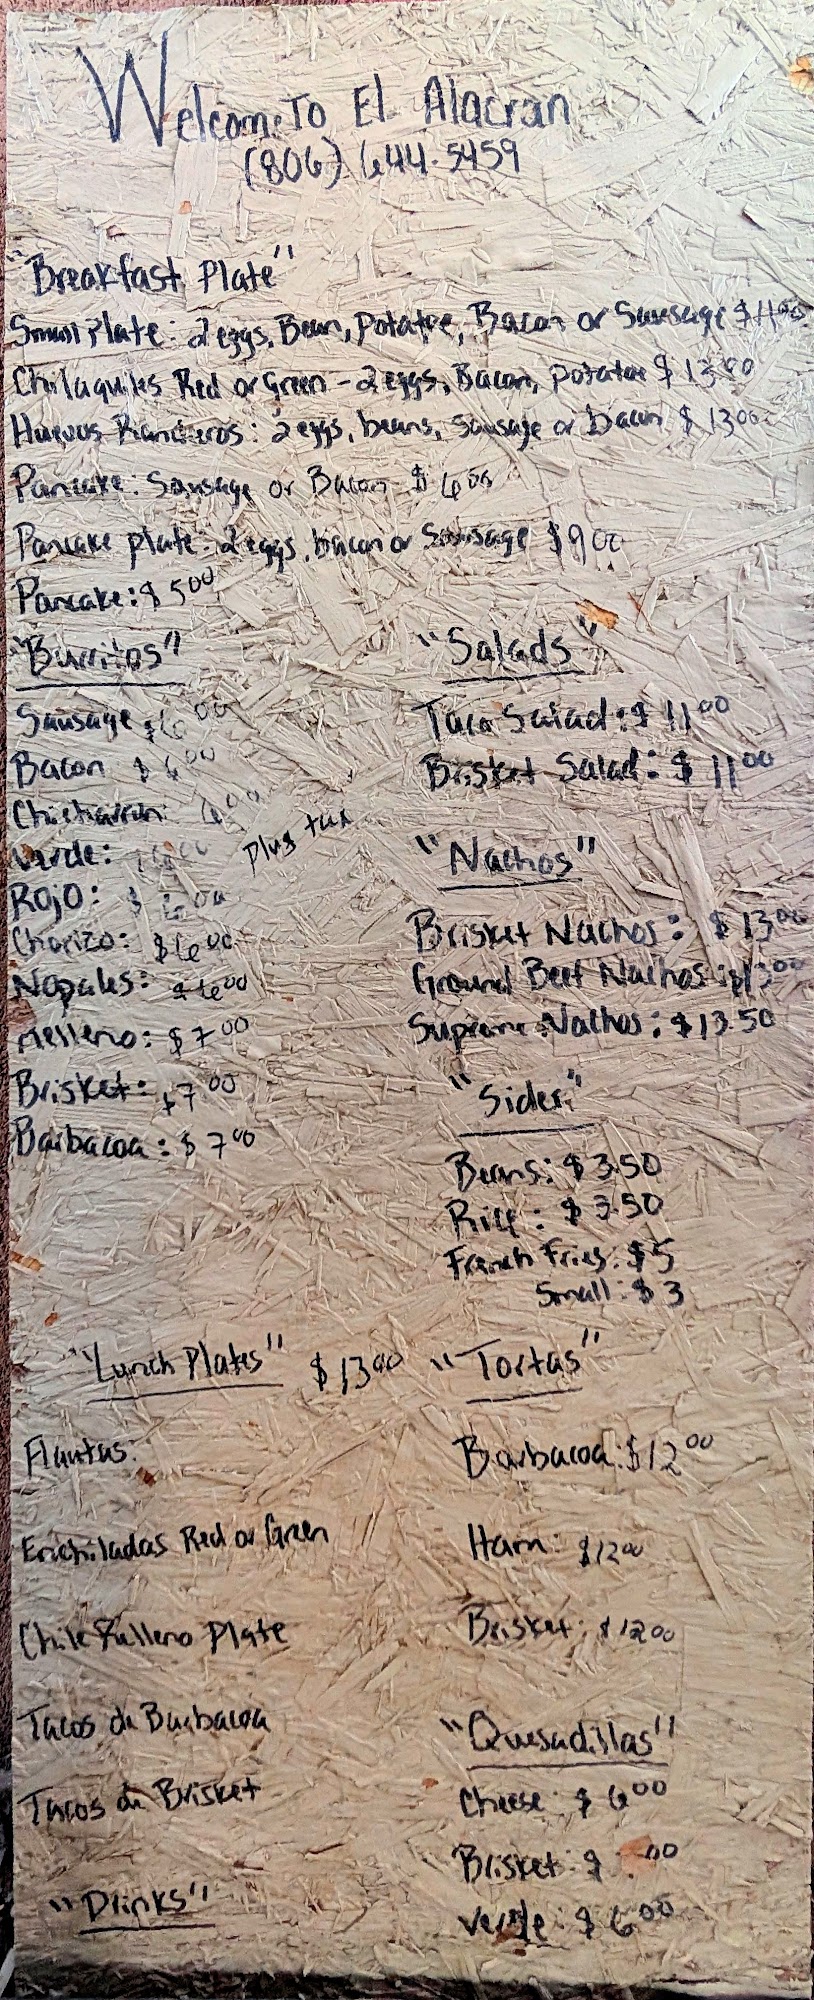 Welcome To El Alacran
(806) 644-5459
"Breakfast Plate"
Small Plate: 2 eggs, Bean, Potatoe, Bacon or Sausage $11.00
Chilaquiles Red or Green - 2 eggs, Bacon, potatoe $13.00
Huevos Rancheros: 2 eggs, beans, Sausage or bacon $13.00
Pancake: Sausage or Bacon $6.00
Pancake plate: 2 eggs, bacon or Sausage $9.00
Pancake: $5.00
"Burritos"
Sausage $6.00
Bacon $6.00
Chicharron: 6.00
Verde:
plus tax
Rojo: $6.00
Chorizo: $6.00
Nopales: $6.00
Relleno: $7.00
Brisket: $7.00
Barbacoa: $7.00
"Salads"
Taco Salad: $11.00
Brisket Salad: $11.00
"Nachos"
Brisket Nachos: $13.00
Ground Beef Nachos: $13.00
Supreme Nachos: $13.50
"Sides"
Beans: $3.50
Rice: $3.50
French Fries: $5
Small: $3
"Lunch Plates" $13.00
Flautas:
Enchiladas Red or Green
Chile Relleno Plate
Tacos de Barbacoa
Tacos de Brisket
"Drinks"
"Tortas"
Barbacoa: $12.00
Ham: $12.00
Brisket: $12.00
"Quesadillas"
Cheese: $6.00
Brisket: $
Verde: $6.00